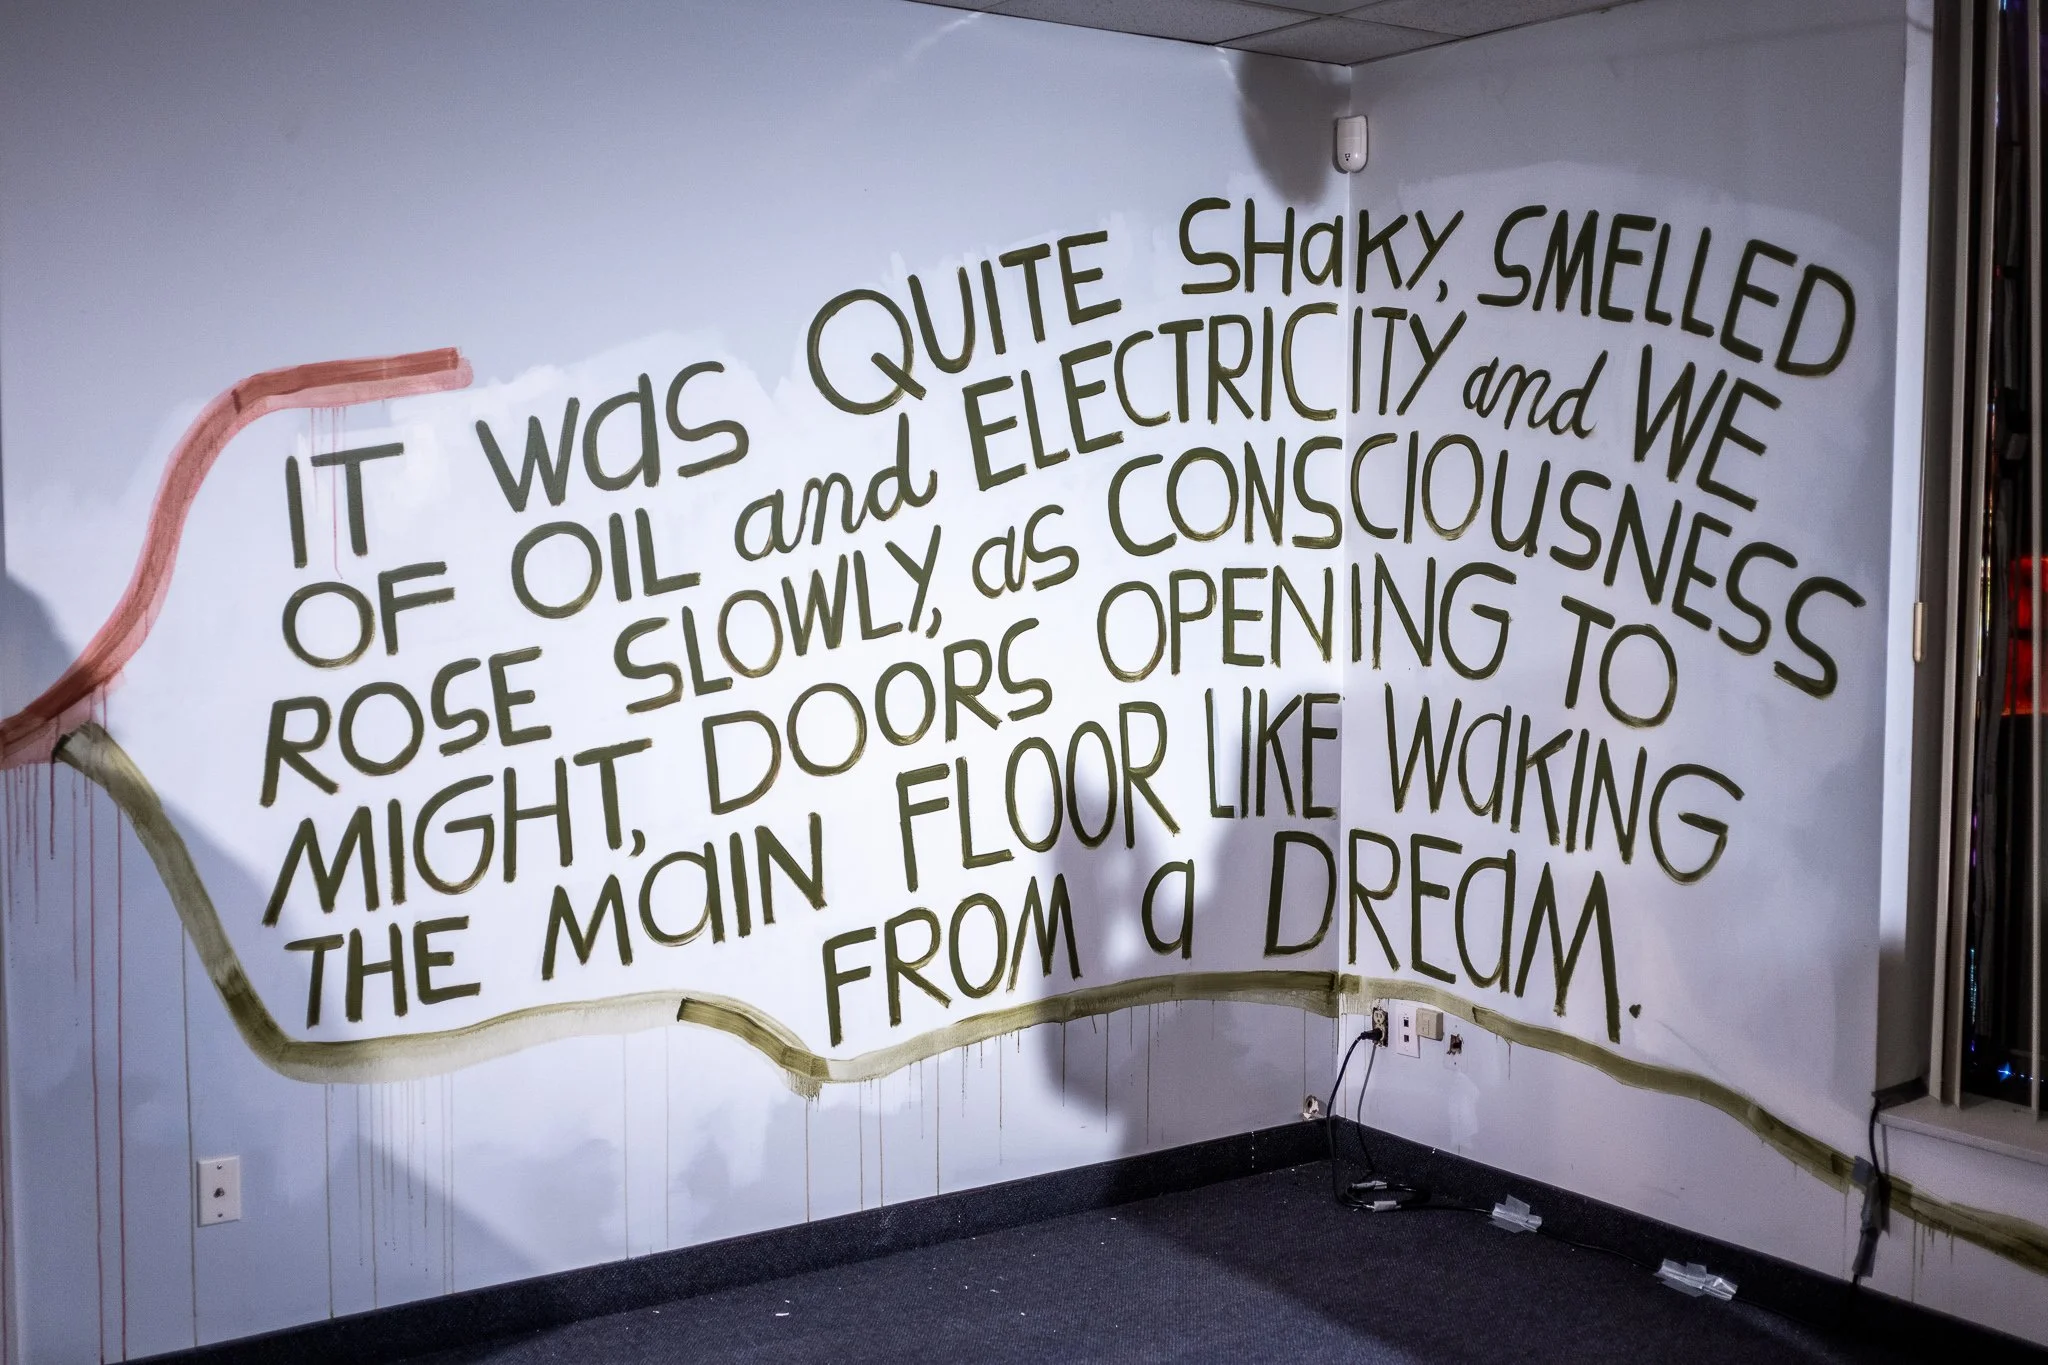 IT WaS QUITE SHaKY, SMELLED
OF OIL and ELECTRICITY and WE
ROSE SLOWLY, aS CONSCIOUSNESS
MIGHT, DOORS OPENING TO
THE MaIN FLOOR LIKE WaKING
FROM a DREaM.